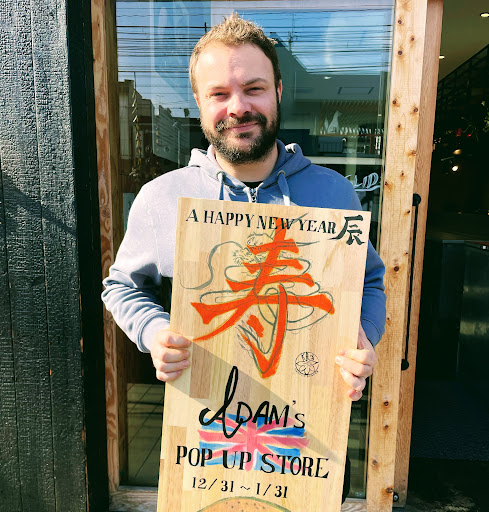 A HAPPY NEW YEAR 辰
寿
ADAM's
POP UP STORE
12/31～1/31